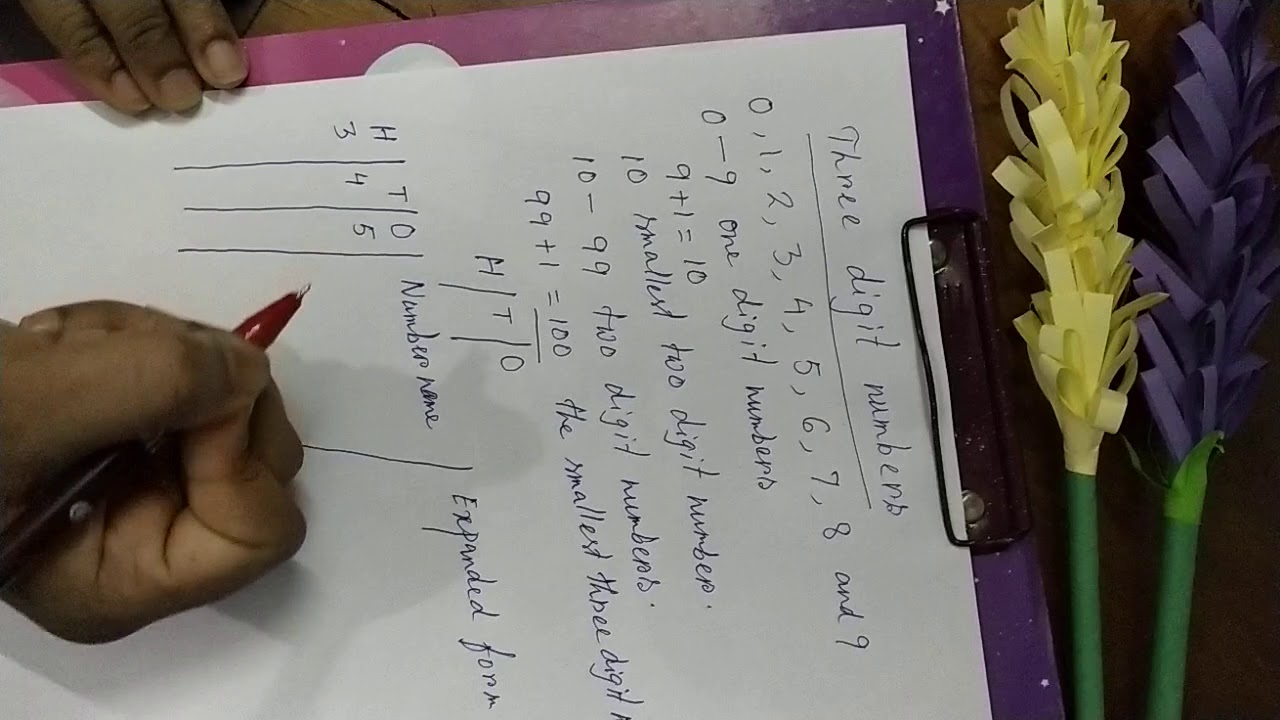 Three digit numbers
0, 1, 2, 3, 4, 5, 6, 7, 8 and 9
0 — 9 one digit numbers
9 + 1 = 10
10 smallest two digit number.
10 — 99 two digit numbers.
99 + 1 = 100 the smallest three digit
H / T / O
H T O Number name Expanded form
3 4 5